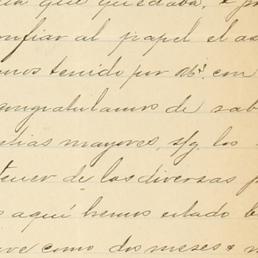 que quedaba, a
confiar al papel el
hemos tenido por Ud. con
congratulamos de sab
mayores, s/g los
tener de las diversas p
s aquí hemos estado b
como dos meses